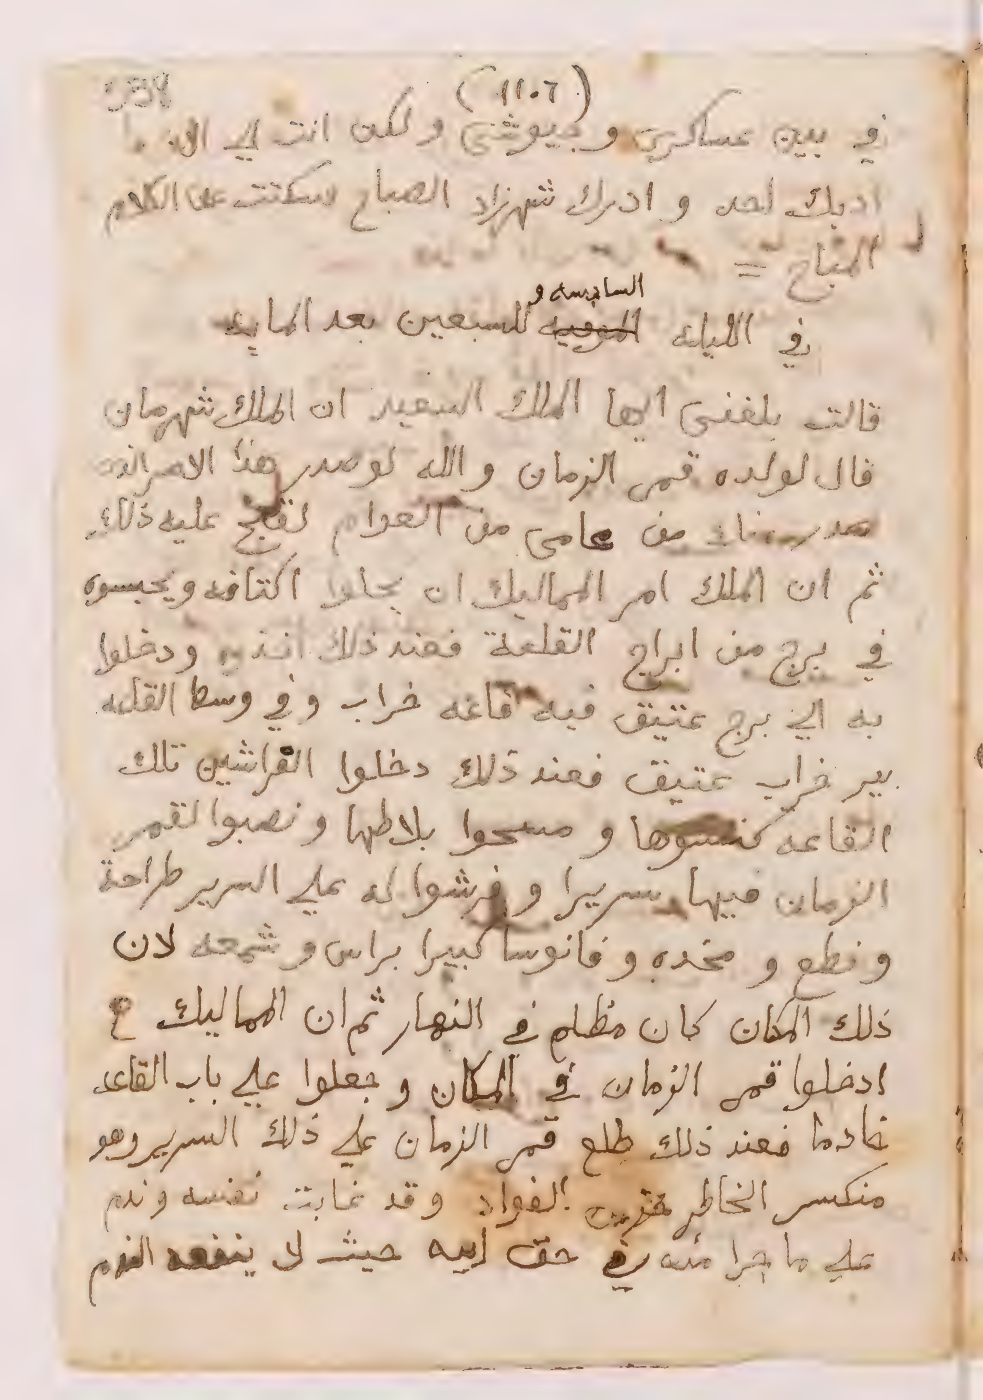 (١١٠٦)
في بين عساكري و جيوشي و لكن انت الي الان ما
ادبك احد و ادرك شهرزاد الصباح فسكتت عن الكلام
المباح =
السادسه و
في الليله الموفيه للسبعين بعد المايه
قالت بلغني ايها الملك السعيد ان الملك شهرمان
قال لولده قمر الزمان والله لو صدر هذا الامر الذي
صدر منك من عامي من العوام لقبح عليه ذلك
ثم ان الملك امر المماليك ان يحلوا اكتافه و يحبسوه
في برج من ابراج القلعة فعند ذلك اخذوه ودخلوا
به الي برج عتيق فيه قاعه خراب و في وسط القاعه
بير خراب عتيق فعند ذلك دخلوا الفراشين تلك
القاعه كنسوها و مسحوا بلاطها و نصبوا لقمر
الزمان فيها سريرا و فرشوا له علي السرير طراحة
و نطع و مخده و فانوسا كبيرا براس و شمعه لان
ذلك المكان كان مظلم في النهار ثم ان المماليك
ادخلوا قمر الزمان في المكان و جعلوا علي باب القاعه
خادما فعند ذلك طلع قمر الزمان علي ذلك السرير وهو
منكسر الخاطر حزين الفواد و قد عابت نفسه و ندم
علي ما جرا منه في حق ابيه حيث لا ينفعه الندم